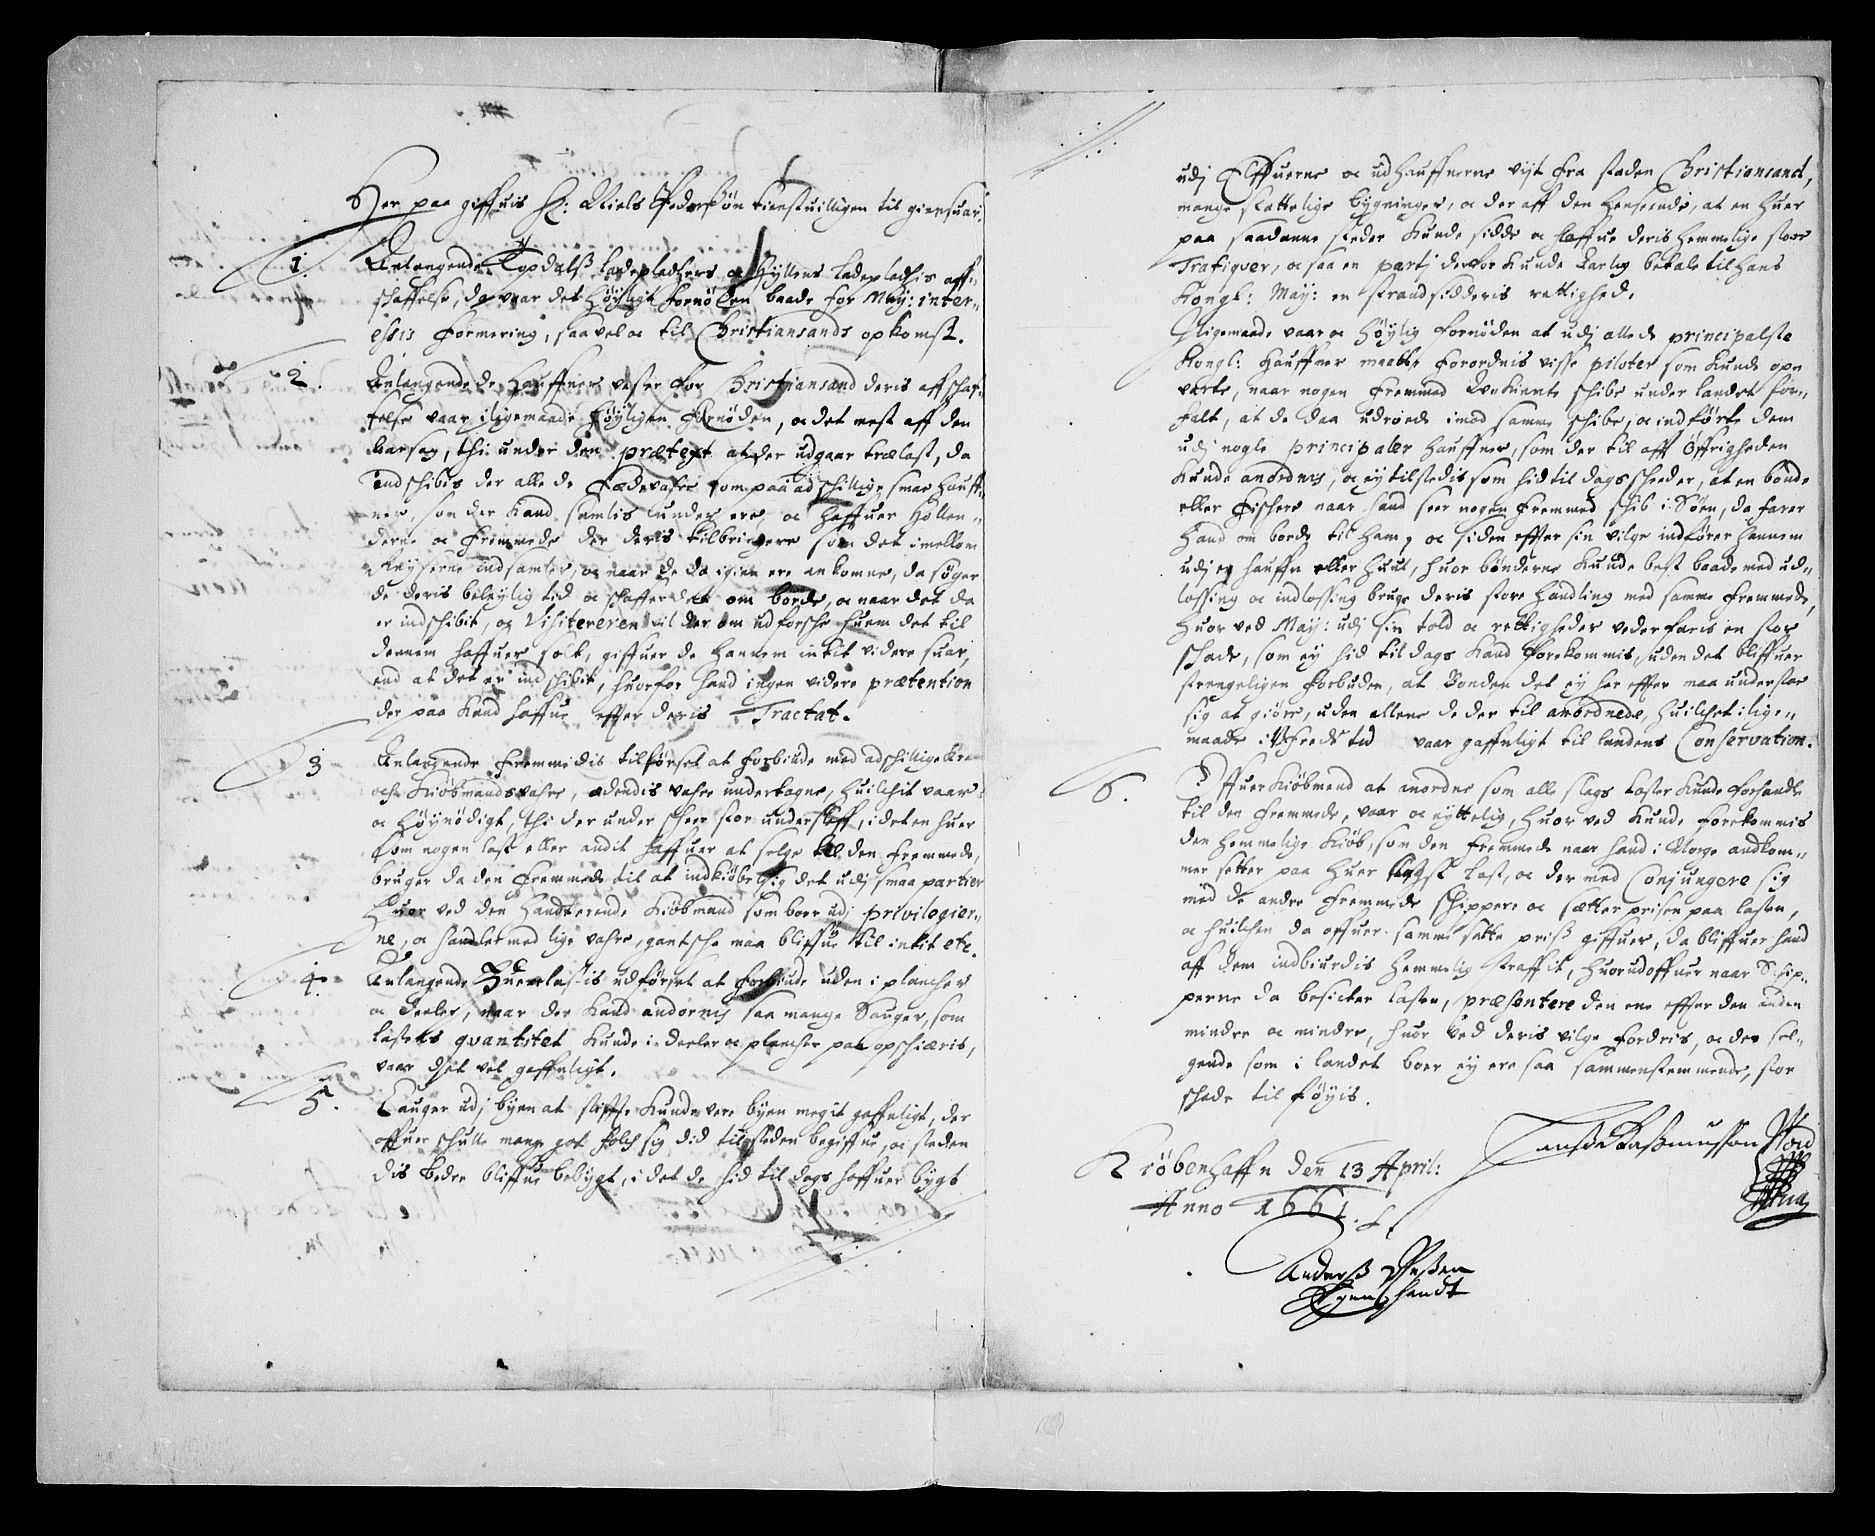 Her paa giffuis H: Niels Pederßøn tienstuilligen til giensuar,
1. Anlangende Topdalß ladepladhers og Hyllens ladepladhis aff-
schaffelse, da vaar det høyligt fornøden baade for May: inter-
essis formering, saavel oc til Christiansands opkomst.
2. Anlangende de Hauffner vester for Christiansand deris affschaf-
felse vaar iligemaade høyligen fornøden, oc det mest aff den
aarsag, thi under den prætext at der udgaar trælast, da
indschibis der alle de fædevahre som paa adschillige smae Hauff-
ner, som der kand samlis lunder ere, oc haffuer Hollen-
derne oc fremmede der deris tilbringere som det imellom
Reyserne indsamler, oc naar de da igien ere ankomne, da søger
de deris beleylig tid oc schaffer det om borde, oc naar det da
er indschibit, og Visitereren vil der om udforsche huem det til
dennem haffuer solt, giffuer de hannem intit videre suar,
end at det er indschibit, huorfor hand ingen videre prætention
der paa kand haffue effter deris Tractat.
3 Anlangende fremmedis tilførsel at forbiude med adschillige kram
och Kiøbmandsvahre, ædendis vahre undertagne, huilchit vaar
oc høynødigt, thi der under scheer stor underslæff, i det en huer
som nogen last eller andit haffuer at selge til den fremmede,
bruger da den fremmede til at indkiøbe sig det udj smaa partier
huor ved den handterende Kiøbmand som boer udj privilegier-
ne, oc handler med lige vahre, gantsche maa bliffue til intit etc.
4. Anlangende lastis udførsel at forbiude uden i plancher
oc deeler, naar der kand andornis saa mange Sauger, som
lastens qvantitet kunde i deeler oc plancher paa opschiæris,
vaar det vel gaffnligt.
5. Lauger udj byen at stiffte kunde vere byen megit gaffnligt, der
offuer schulle mange got folch sig did til steden begiffue, oc steden
dis bedre bliffue bebygt, i det de hid til dags haffuer bygt
udj Elffuerne oc udhauffnerne vijt fra staden Christiansand,
mange stattelige bygninger, oc der aff den henseende, at en huer
paa saadanne steder kunde sidde oc haffue deris hemmelige store
Trafiqver, oc saa en partj derfor kunde aarlig betale til Hans
Kongl: May: en strandsidderis rettighed.
Iligemaade vaar oc høylig fornøden at udj alle de principalste
Kongl: Hauffner maatte forordnis visse piloter som kunde opn
varte, naar nogen fremmed ubekiente schibe under landet for-
falt, at de daa udroede imod samme schibe, oc indførte dem
udj nogle principaler Hauffner, som der til aff Øffrigheden
kunde andrdnis, oc ey tilstedis som hid til dags scheeder, at en bonde
eller fischere naar hand seer nogen fremmed schib i Søen, da farer
hand om borde til ham, oc siden effter sin vilge indfører hannem
udj en hauffn eller huul, huor bønderne kunde best baade med ud-
lossing oc indlossing bruge deris store handling med samme fremmede,
huor ved May: udj sin told oc rettigheder vederfaris en stor
schade, som ey hid til dags kand forekommis, uden det bliffuer
strengeligen forbuden, at bonden det ey her effter maa understaae
sig at giøre, uden allene de der til anbednede, huilchet ilige-
maade i Ufreds tid vaar gaffnligt til landens Conservation.
6. Offuer Kiøbmend at inordne som alle slags laster kunde forhandle
til den fremmede, vaar oc nyttelig, huor ved kunde forekommis
den hemmelige Kiøb, som den fremmede naar hand i Norge andkom-
mer setter paa huer slags last, oc der med Conjungere sig
med de andre fremmede schippere oc sætter prisen paa lasten,
oc huilchen da offuer samme satte priß giffuer, da bliffuer hand
aff dem indbiurdis hemmelig straffit, huorudoffuer naar Schip-
perne da besicter lasten, præsentere den ene effter den anden
mindre oc mindre, huor ved deris vilge fordris, oc de sel-
gende som i landet boer ey ere saa sammenstemmende, stor
schade til føyis.
Kiøbenhaffn den 13 April:
Anno 1661.
Anderß Olßen
Egen handt